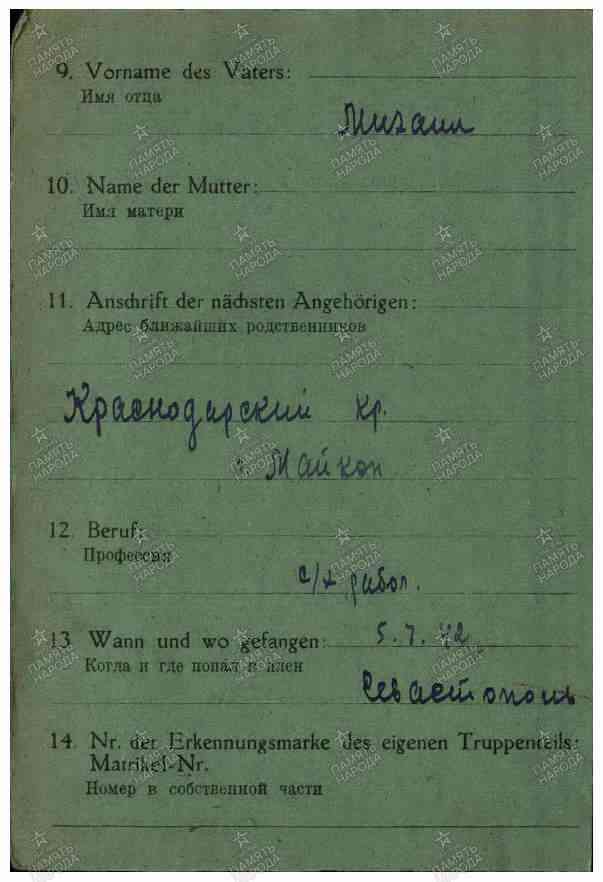 9. Vorname des Vaters:
Имя отца
Михаил
10. Name der Mutter:
Имя матери
11. Anschrift der nächsten Angehörigen:
Адрес ближайших родственников
Краснодарский кр.
г Майкоп
12. Beruf:
Профессия
с/х работ.
13. Wann und wo gefangen: 5.7.42
Когда и где попал в плен
Севастополь
14. Nr. der Erkennungsmarke des eigenen Truppenteils:
Matrikel-Nr.
Номер в собственной части
ПАМЯТЬ НАРОДА